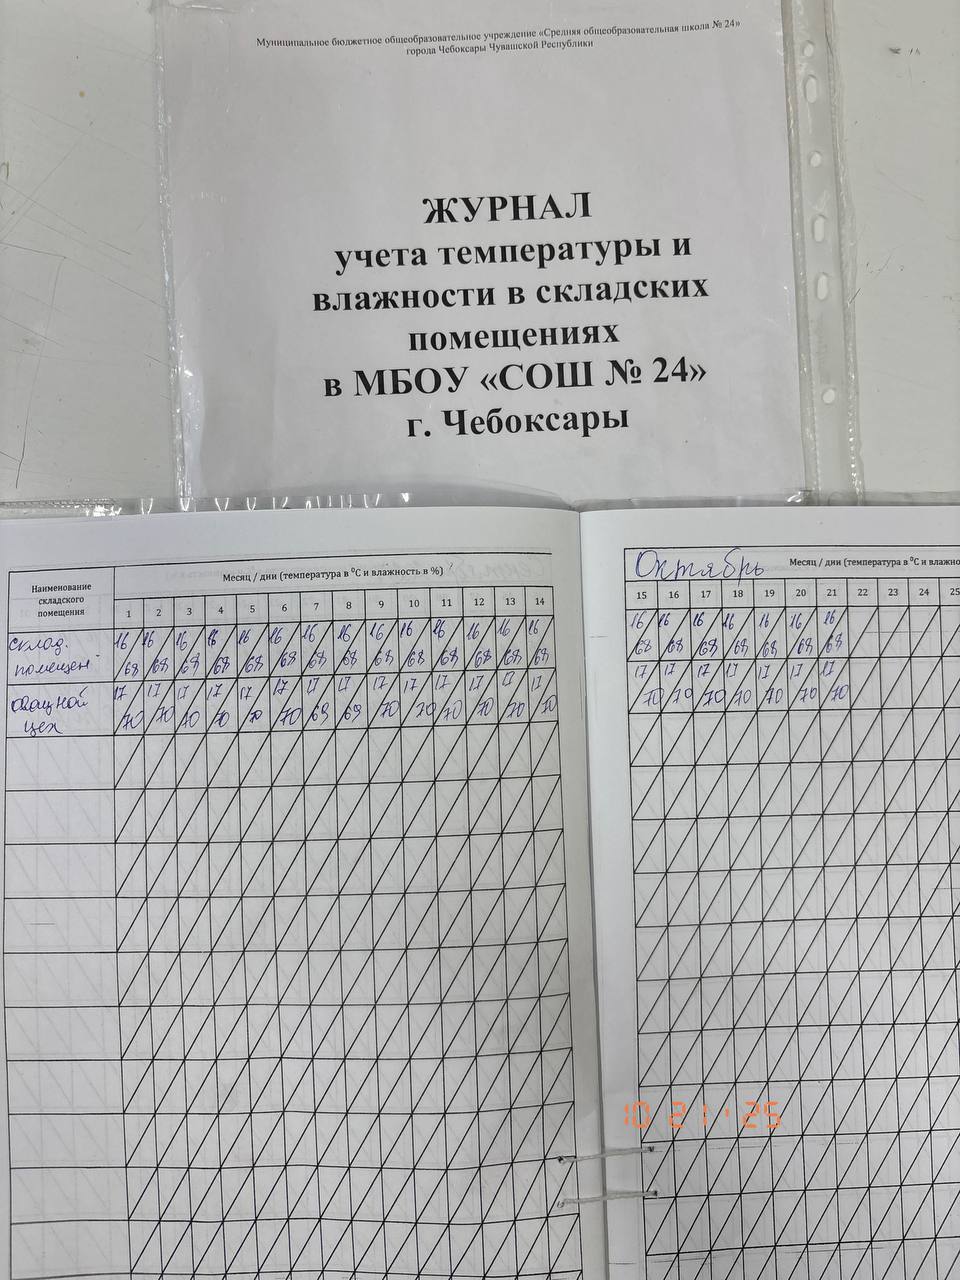 Муниципальное бюджетное общеобразовательное учреждение «Средняя общеобразовательная школа № 24»
города Чебоксары Чувашской Республики
ЖУРНАЛ
учета температуры и
влажности в складских
помещениях
в МБОУ «СОШ № 24»
г. Чебоксары
Наименование складского помещения
Месяц / дни (температура в °С и влажность в %)
1 2 3 4 5 6 7 8 9 10 11 12 13 14
склад. 16 16 16 16 16 16 16 16 16 16 16 16 16 16
помещен 68 68 68 68 68 68 68 68 68 68 68 68 68 68
овощной 17 17 17 17 17 17 17 17 17 17 17 17 17 17
цех 70 70 70 70 70 70 69 69 70 70 70 70 70 70
Октябрь Месяц / дни (температура в °С и влажно
15 16 17 18 19 20 21 22 23 24 25
16 16 16 16 16 16 16
68 68 68 68 68 68 68
17 17 17 17 17 17 17
70 70 70 70 70 70 70
10 21 '25